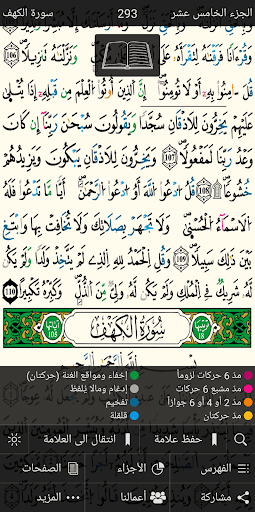 الجزء الخامس عشر 293 سورة الكهف
وَقُرْءَانًا فَرَقْنَٰهُ لِتَقْرَأَهُ وَنَزَّلْنَٰهُ تَنزِيلًا
106 قُلْ ءَامِنُوا۟ بِهِۦٓ أَوْ لَا تُؤْمِنُوٓا۟ إِنَّ ٱلَّذِينَ أُوتُوا۟ ٱلْعِلْمَ مِن قَبْلِهِۦٓ إِذَا يُتْلَىٰ
عَلَيْهِمْ يَخِرُّونَ لِلْأَذْقَانِ سُجَّدًا وَيَقُولُونَ سُبْحَٰنَ رَبِّنَآ إِن كَانَ
وَعْدُ رَبِّنَا لَمَفْعُولًا 107 وَيَخِرُّونَ لِلْأَذْقَانِ يَبْكُونَ وَيَزِيدُهُمْ
خُشُوعًا 108 قُلِ ٱدْعُوا۟ ٱللَّهَ أَوِ ٱدْعُوا۟ ٱلرَّحْمَٰنَ أَيًّا مَّا تَدْعُوا۟ فَلَهُ
ٱلْأَسْمَآءُ ٱلْحُسْنَىٰ وَلَا تَجْهَرْ بِصَلَاتِكَ وَلَا تُخَافِتْ بِهَا وَٱبْتَغِ
بَيْنَ ذَٰلِكَ سَبِيلًا وَقُلِ ٱلْحَمْدُ لِلَّهِ ٱلَّذِى لَمْ يَتَّخِذْ وَلَدًا وَلَمْ يَكُن
لَّهُۥ شَرِيكٌ فِى ٱلْمُلْكِ وَلَمْ يَكُن لَّهُۥ وَلِىٌّ مِّنَ ٱلذُّلِّ وَكَبِّرْهُ تَكْبِيرًۢا 110
سُورَةُ ٱلْكَهْفِ
آياتها 105
ترتيبها 18
مدّ 6 حركات لزوماً
إخفاء ومواقع الغنة (حركتان)
مدّ مشبع 6 حركات
إدغام ومالا يُلفظ
مدّ 2 أو 4 أو 6 جوازاً
تفخيم
مدّ حركتان
قلقلة
حفظ علامة
انتقال الى العلامة
الفهرس
الأجزاء
الصفحات
مشاركة
أعمالنا
المزيد